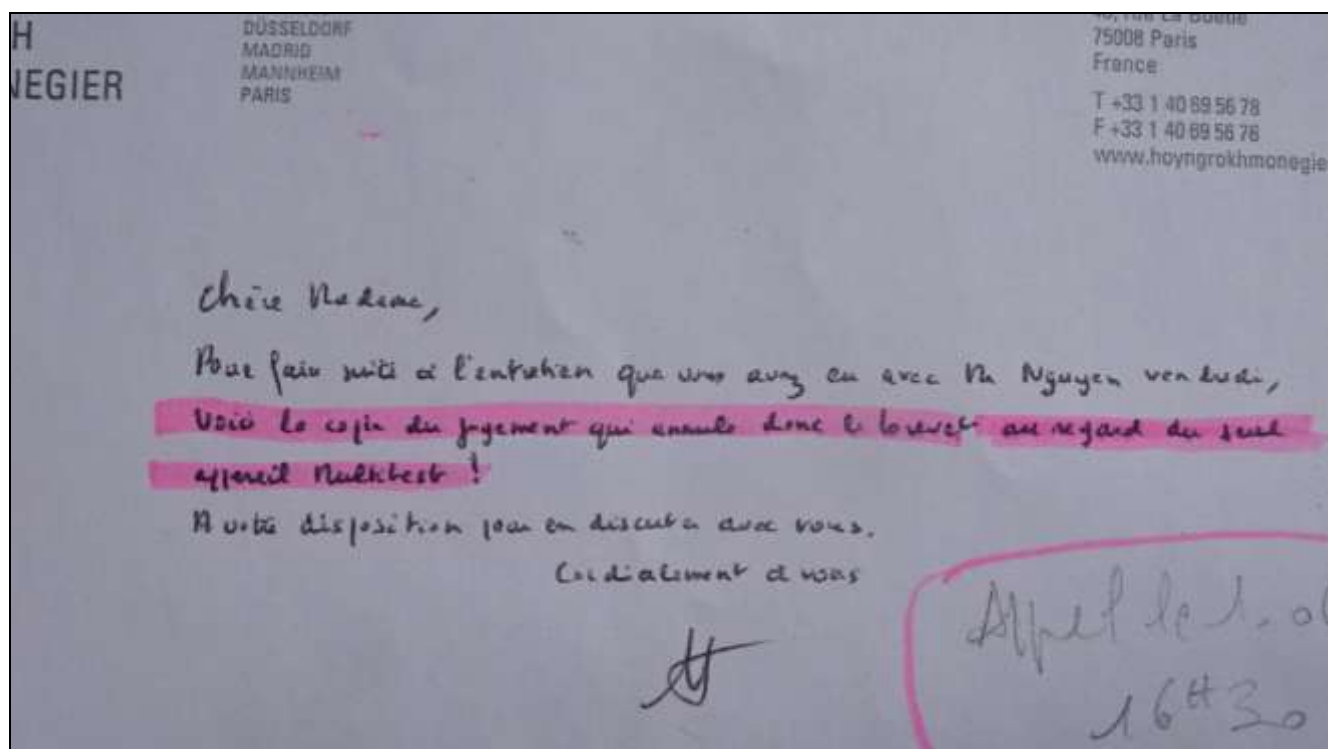 H
NEGIER
DÜSSELDORF
MADRID
MANNHEIM
PARIS
75008 Paris
France
T +33 1 40 69 56 78
F +33 1 40 69 56 76
www.hoyngrokhmonegie
Chère Madame,
Pour faire suite à l'entretien que vous avez eu avec Me Nguyen vendredi,
Voici la copie du jugement qui annule donc le brevet au regard du seul
appareil Multitest !
A votre disposition pour en discuter avec vous.
Cordialement à vous
Appel le
16H30